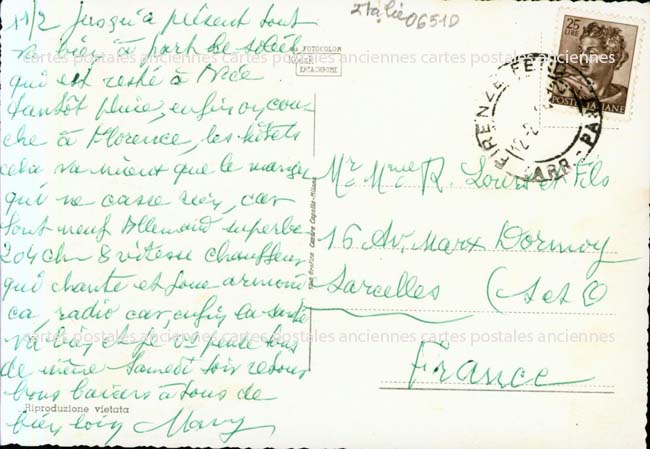 11/2 jusqu'à présent tout
va bien à part le soleil
qui est resté à Nice
tantôt pluie, enfin on cou
che à Florence, les hôtels
cela va mieux que le manger
qui ne casse rien, car
tout neuf Allemand superbe
204 ch 8 vitesse chauffeur
qui chante et joue armoni
ca, radio car, enfin la santé
va bien et je pense vous
de même Samedi soir retour
bons baisers à tous de
bien loin Mary
Riproduzione vietata
FOTOCOLOR
EKTACHROME
Italie 0651D
25
LIRE
POSTE ITALIANE
FIRENZE FERR
ARR - PAR
Tipo Grafica Cesare Capello - Milano
Mr Mme R. Louis et Fils
16 Av. Marx Dormoy
Sarcelles (S et O
France
cartes postales anciennes cartes postales anciennes cartes postales anciennes